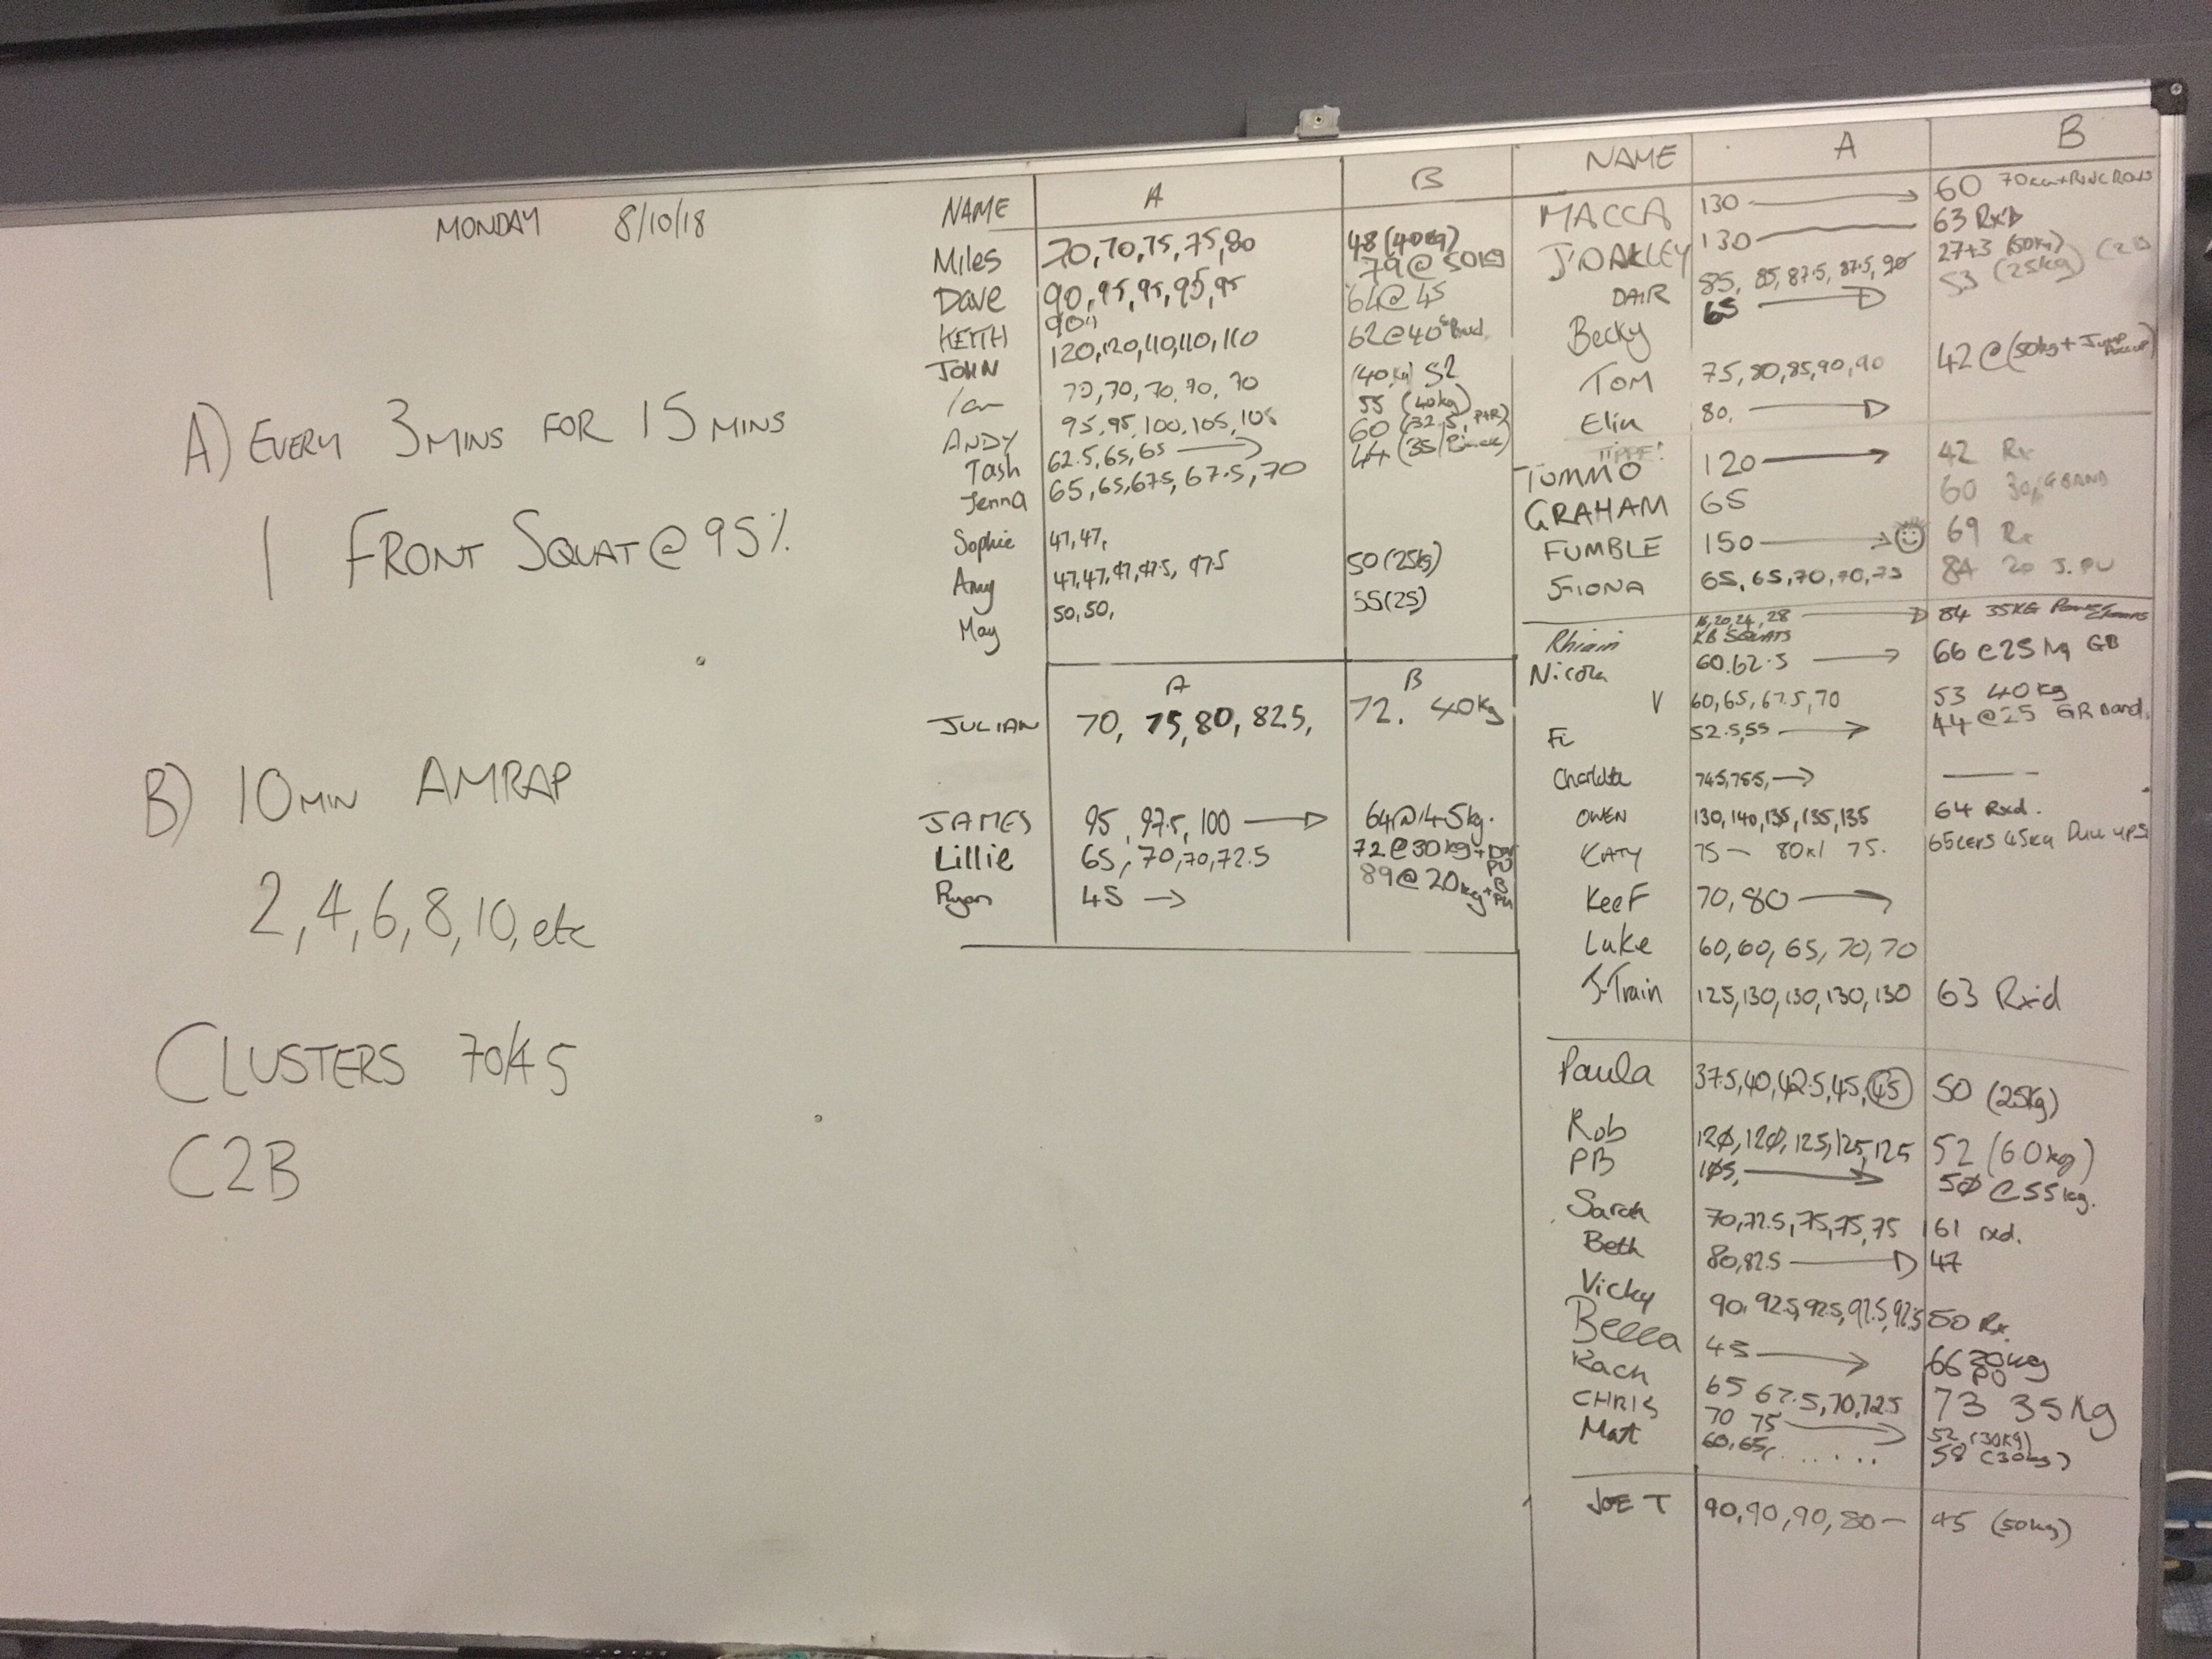 MONDAY 8/10/18
A) EVERY 3 MINS FOR 15 MINS
1 FRONT SQUAT @ 95%
B) 10 MIN AMRAP
2, 4, 6, 8, 10, etc
CLUSTERS 70/45
C2B
NAME A B
Miles 70, 70, 75, 75, 80 48 (40kg)
Dave 90, 95, 95, 95, 95 79 @ 50kg
KEITH 90 64 @ 45
JOHN 120, 120, 110, 110, 110 62 @ 40
Ian 70, 70, 70, 70, 70 (40kg) 52
ANDY 95, 95, 100, 105, 105 55 (40kg)
Tash 62.5, 65, 65 → 60 (32.5,
Jenna 65, 65, 67.5, 67.5, 70 44 (35/
Sophie 47, 47,
Amy 47, 47, 47, 47.5, 47.5 50 (25kg)
May 50, 50, 55 (25)
A B
JULIAN 70, 75, 80, 82.5, 72. 40kg
JAMES 95, 97.5, 100 → 64 @ 45kg.
Lillie 65, 70, 70, 72.5 72 @ 30kg + PU
Ryan 45 → 89 @ 20kg + B PU
NAME A B
MACCA 130 → 60 70kg + RING ROWS
J'OAKLEY 130 — 63 Rx'D
DAIR 85, 85, 87.5, 87.5, 90 27+3 (50kg)
Becky 65 → 53 (25kg)
TOM 75, 80, 85, 90, 90 42 @ (50kg + JUMP PULLUP)
Elin 80, →
TOMMO 120 → 42 Rx
GRAHAM 65 60 30, G BAND
FUMBLE 150 → 69 Rx
FIONA 65, 65, 70, 70, 75 84 20 J. PU
Rhiain 16, 20, 24, 28 → 84 35KG
KB SQUATS
Nicola 60. 62.5 → 66 @ 25kg GB
V 60, 65, 67.5, 70 53 40kg
Fi 52.5, 55 → 44 @ 25 GR Band.
Charlotte 74.5, 75.5, → —
OWEN 130, 140, 135, 135, 135 64 Rxd.
KATY 75 — 80x1 75. 65 45kg Pull ups
KeeF 70, 80 →
Luke 60, 60, 65, 70, 70
J-Train 125, 130, 130, 130, 130 63 Rx'd
Paula 37.5, 40, 42.5, 45, 45 50 (25kg)
Rob 120, 120, 125, 125, 125 52 (60kg)
PB 105, → 50 @ 55kg.
Sarah 70, 72.5, 75, 75, 75 61 rxd.
Beth 80, 82.5 → 47
Vicky 90, 92.5, 92.5, 92.5, 92.5 50 Rx.
Becca 45 → 66 20kg PU
Rach 65 67.5, 70, 72.5 73 35kg
CHRIS 70 75 → 52 (30kg)
Mat 60, 65, ..... 58 (30kg)
JOE T 90, 90, 90, 80 — 45 (50kg)